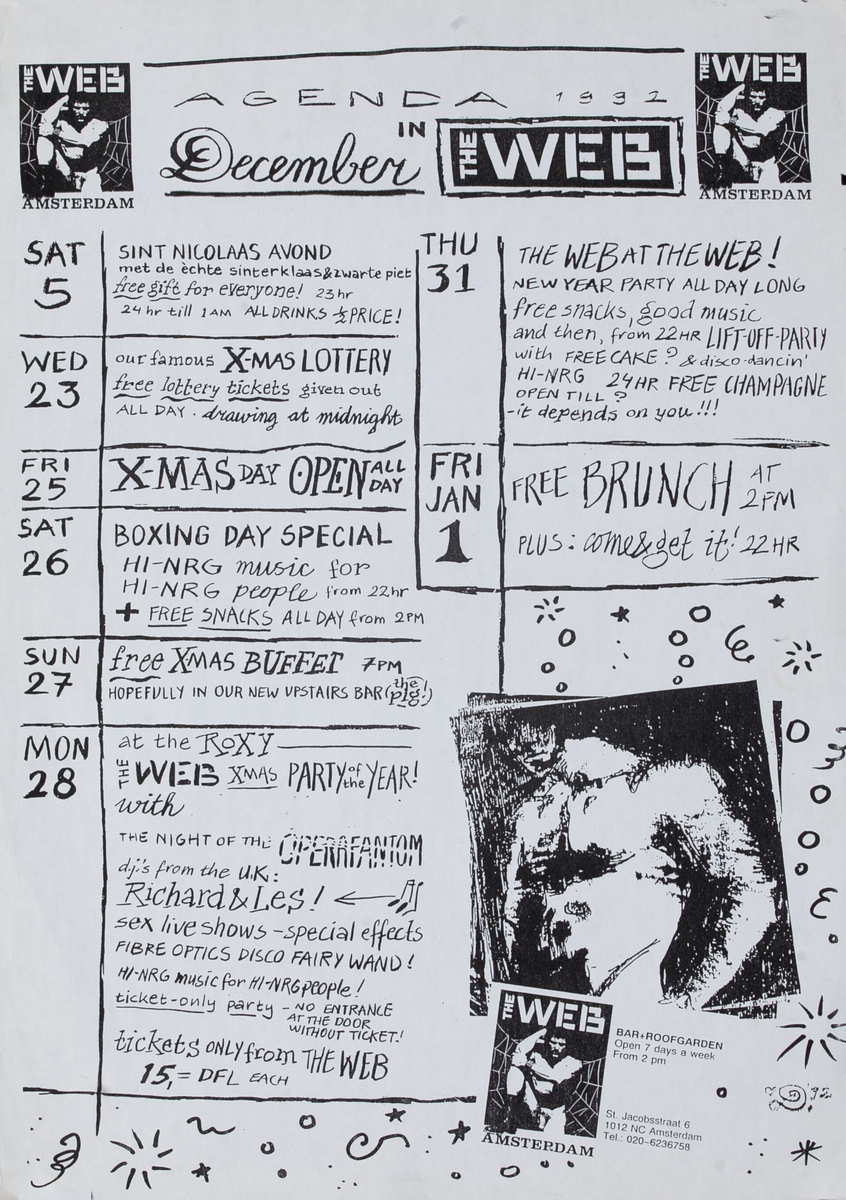 THE WEB
AMSTERDAM
AGENDA 1992
IN
December
THE WEB
THE WEB
AMSTERDAM
SAT
5
SINT NICOLAAS AVOND
met de èchte sinterklaas&zwarte piet
free gift for everyone! 23hr
24hr till 1AM ALL DRINKS ½ PRICE!
WED
23
our famous X-MAS LOTTERY
free lottery tickets given out
ALL DAY · drawing at midnight
FRI
25
X-MAS DAY OPEN ALL
DAY
SAT
26
BOXING DAY SPECIAL
HI-NRG music for
HI-NRG people from 22hr
+ FREE SNACKS ALL DAY from 2PM
SUN
27
free XMAS BUFFET 7PM
HOPEFULLY IN OUR NEW UPSTAIRS BAR (the
pig!)
MON
28
at the ROXY
THE WEB XMAS PARTY of the YEAR!
with
THE NIGHT OF THE OPERAFANTOM
dj's from the U.K:
Richard & Les!
sex live shows - special effects
FIBRE OPTICS DISCO FAIRY WAND!
HI-NRG music for HI-NRG people!
ticket-only party - NO ENTRANCE
AT THE DOOR
WITHOUT TICKET!
tickets ONLY from THE WEB
15,= DFL EACH
THU
31
THE WEB AT THE WEB!
NEW YEAR PARTY ALL DAY LONG
free snacks, good music
and then, from 22HR LIFT-OFF-PARTY
with FREE CAKE? & disco-dancin'
HI-NRG 24HR FREE CHAMPAGNE
OPEN TILL?
-it depends on you!!!
FRI
JAN
1
FREE BRUNCH AT
2PM
PLUS: come&get it! 22HR
THE WEB
AMSTERDAM
BAR+ROOFGARDEN
Open 7 days a week
From 2 pm
St. Jacobsstraat 6
1012 NC Amsterdam
Tel.: 020-6236758
92